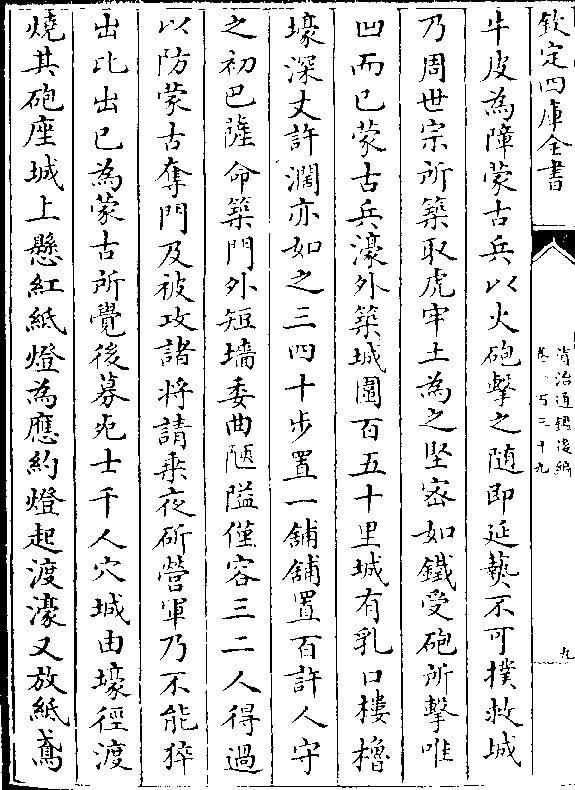 欽定四庫全書
資治通鑑後編
卷一百三十九
九
牛皮為障蒙古兵以火砲擊之随即延爇不可撲救城
乃周世宗所築取虎牢土為之堅宻如鐵受砲所擊唯
凹而已蒙古兵濠外築城圍百五十里城有乳口樓櫓
壕深丈許濶亦如之三四十步置一舖舖置百許人守
之初巴薩命築門外短墻委曲陿隘僅容三二人得過
以防蒙古奪門及被攻諸将請乗夜斫營軍乃不能猝
出比出已為蒙古所覺後募死士千人穴城由壕徑渡
燒其砲座城上懸紅紙燈為應約燈起渡濠又放紙鳶